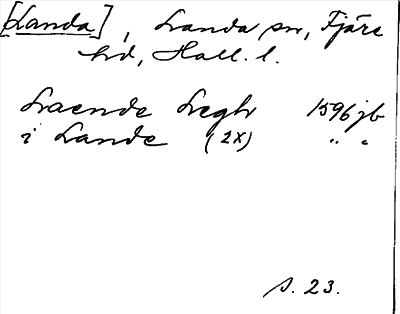 [Landa], Landa sn, Fjäre
hd, Hall. l.
Laende Leghr 1596 jb
i Lande (2x) " "
s. 23.